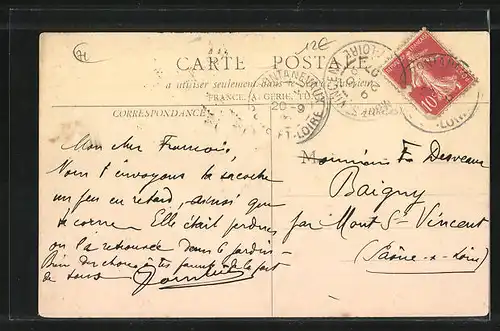 12€
CARTE POSTALE
a utiliser seulement dans le
FRANCE, ALGERIE, TUNISIE
CORRESPONDANCE
20-9
ET-LOIRE
10
Mon cher Francois,
Nous t'envoyons ta sacoche
un peu en retard, ainsi que
ta corne. Elle était perdue
on l'a retrouvée dans le jardin
Bien des choses à tes parents de la part
de tous
Monsieur Fs Desveaux
Baigny
par Mont St Vincent
(Saône-&-Loire)